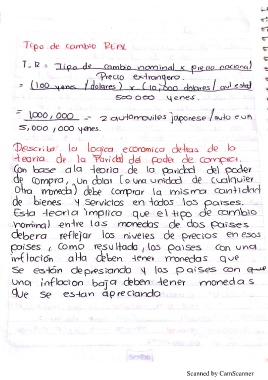 Tipo de cambio REAL
T.R = Tipo de cambio nominal x precio nacional
Precio extrangero.
= (100 yenes / dolares) x (10,000 dolares / aut estad
500 000 yenes.
= 1000,000 = 2 automoviles japonese / auto eun
5,000,000 yenes.
Describa la logica economica detras de la
teoria de la Paridad del poder de compra.
Con base ala teoria de la paridad del poder
de compra, un dolar (o una unidad de cualquier
Otra moneda) debe comprar la misma cantidad
de bienes y servicios en todos los paises.
Esta teoria implica que el tipo de cambio
nominal entre las monedas de dos paises
debera reflejar los niveles de precios en esos
paises, como resultado, los paises con una
inflacion alta deben tener monedas que
se estan depresiando y los paises con que
una inflacion baja deben tener monedas
que se estan apreciando
Scanned by CamScanner